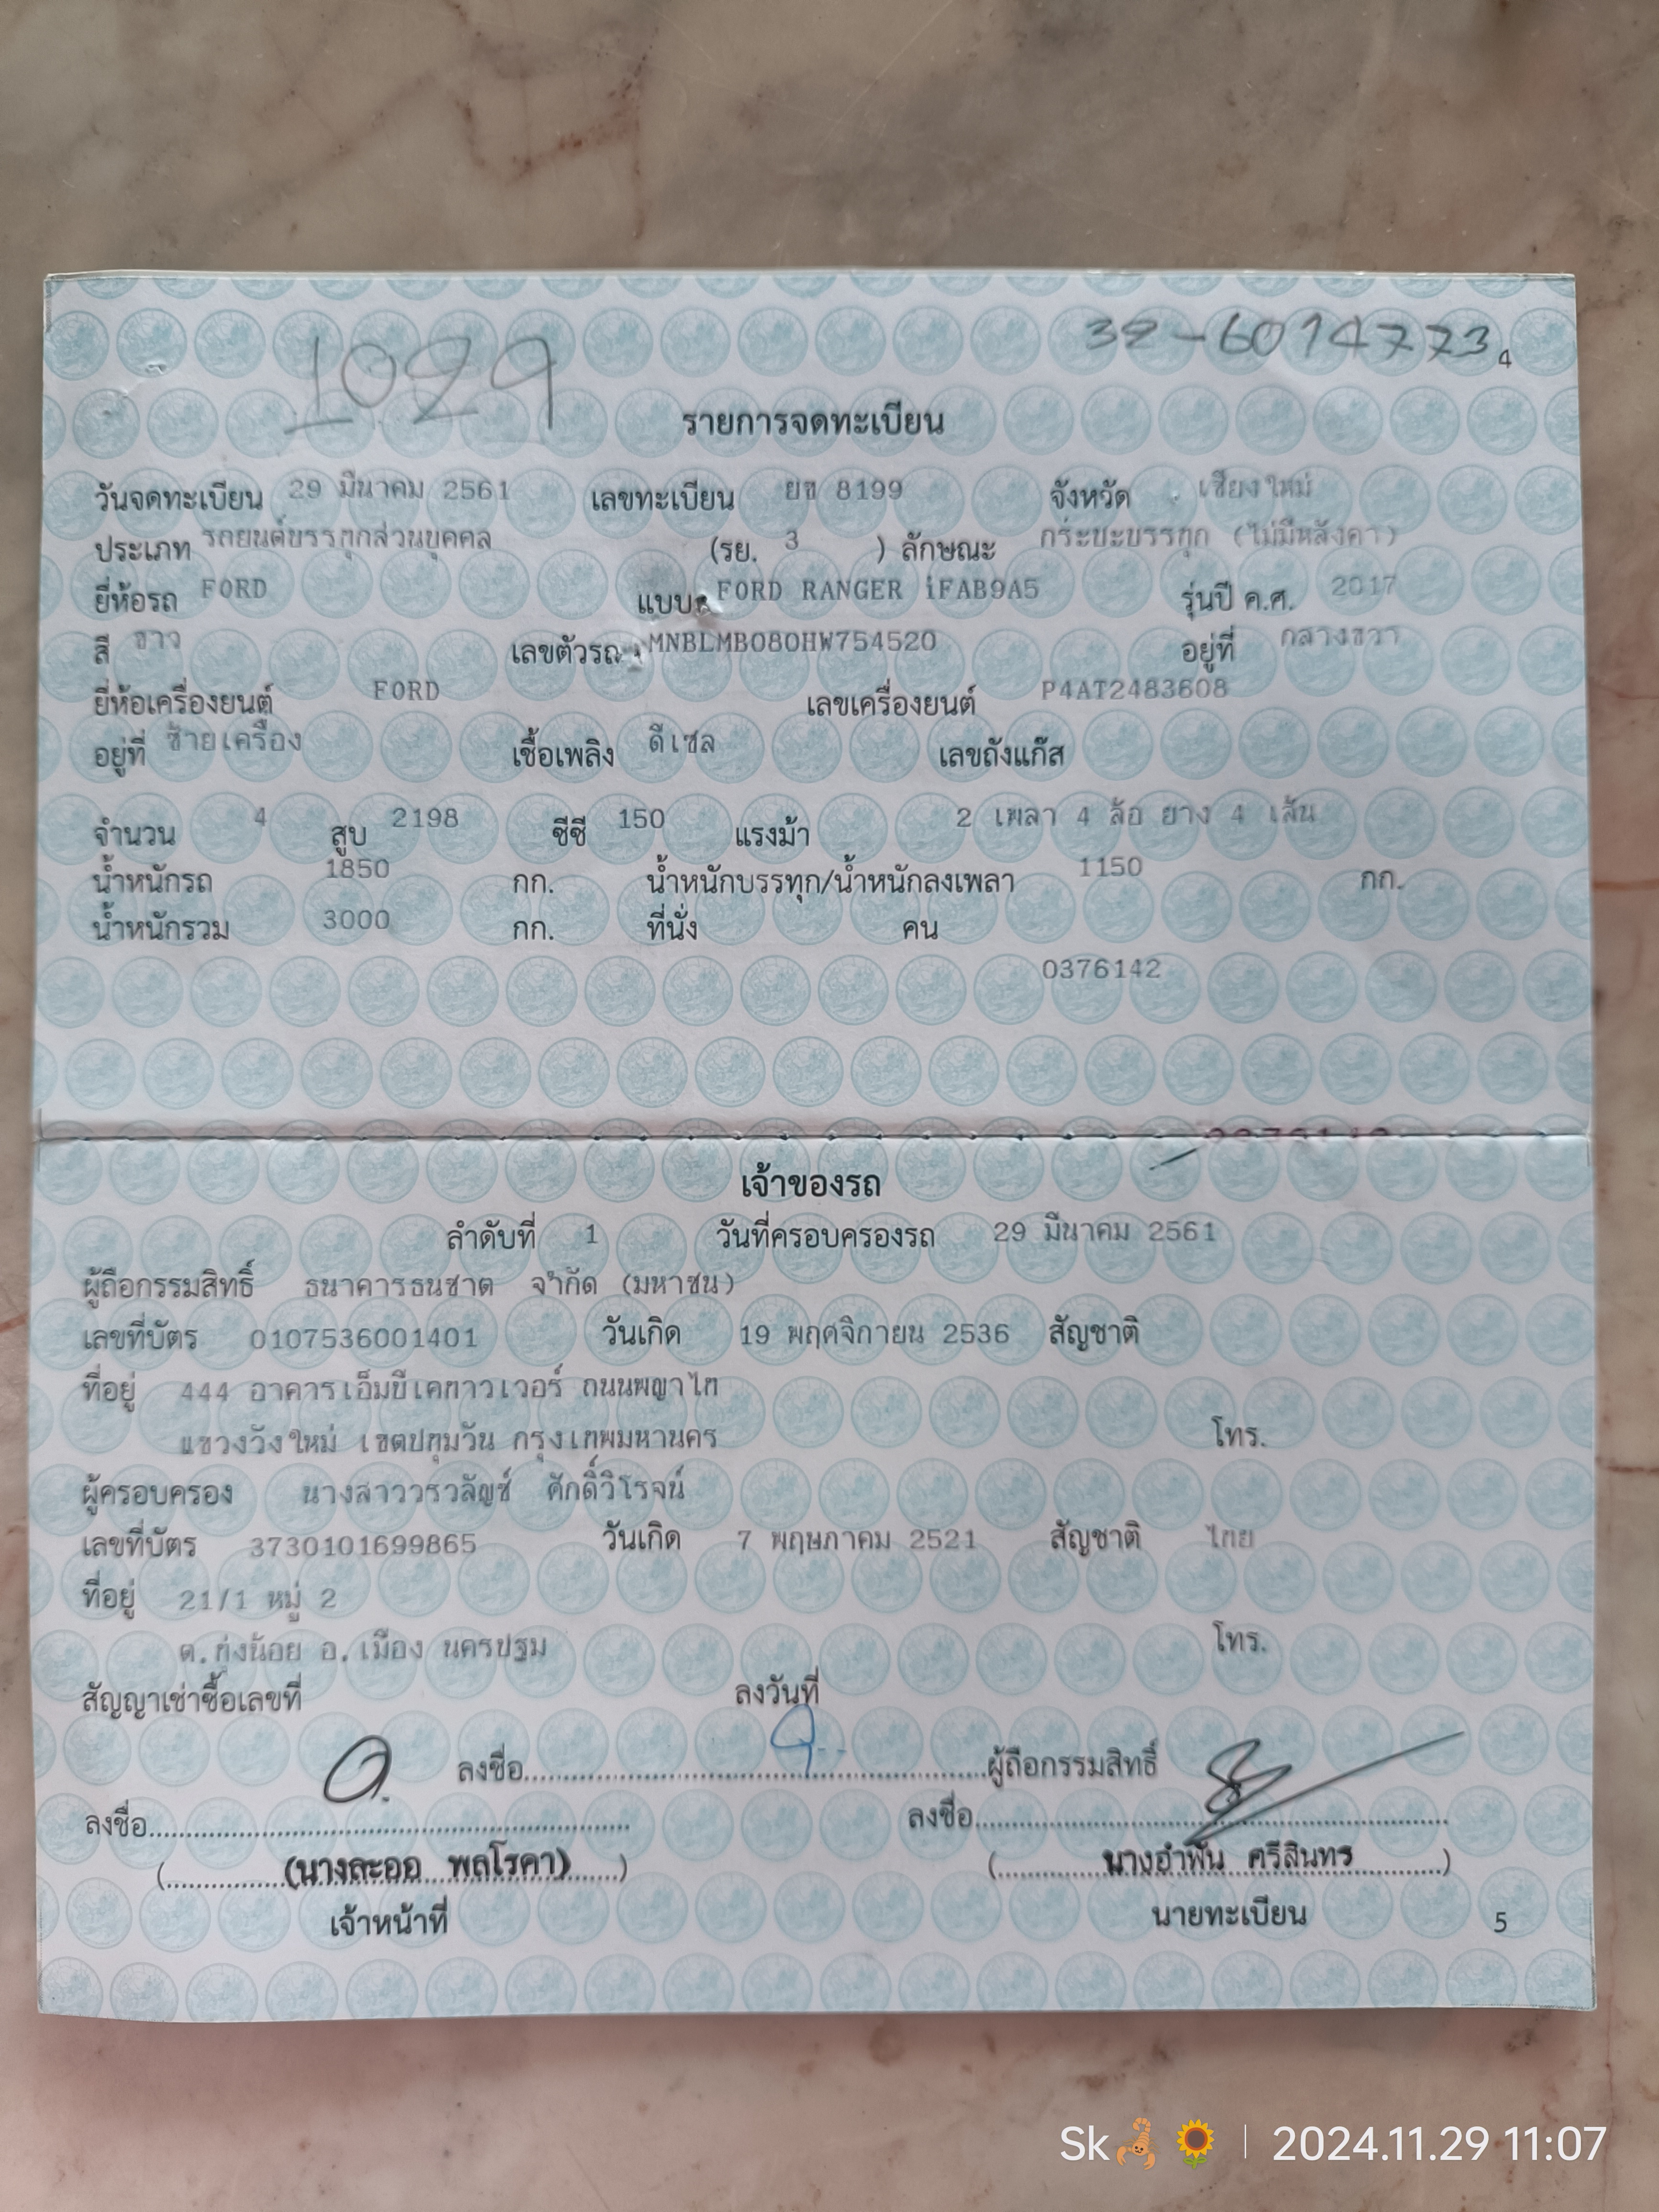 1029
32-6014773
4
รายการจดทะเบียน
วันจดทะเบียน 29 มีนาคม 2561 เลขทะเบียน ยข 8199 จังหวัด เชียงใหม่
ประเภท รถยนต์บรรทุกส่วนบุคคล (รย. 3 ) ลักษณะ กระบะบรรทุก (ไม่มีหลังคา)
ยี่ห้อรถ FORD แบบ FORD RANGER iFAB9A5 รุ่นปี ค.ศ. 2017
สี ขาว เลขตัวรถ MNBLMB080HW754520 อยู่ที่ กลางขวา
ยี่ห้อเครื่องยนต์ FORD เลขเครื่องยนต์ P4AT2483608
อยู่ที่ ซ้ายเครื่อง เชื้อเพลิง ดีเซล เลขถังแก๊ส
จำนวน 4 สูบ 2198 ซีซี 150 แรงม้า 2 เพลา 4 ล้อ ยาง 4 เส้น
น้ำหนักรถ 1850 กก. น้ำหนักบรรทุก/น้ำหนักลงเพลา 1150 กก.
น้ำหนักรวม 3000 กก. ที่นั่ง คน
0376142
เจ้าของรถ
ลำดับที่ 1 วันที่ครอบครองรถ 29 มีนาคม 2561
ผู้ถือกรรมสิทธิ์ ธนาคารธนชาต จำกัด (มหาชน)
เลขที่บัตร 0107536001401 วันเกิด 19 พฤศจิกายน 2536 สัญชาติ
ที่อยู่ 444 อาคารเอ็มบีเคทาวเวอร์ ถนนพญาไท
แขวงวังใหม่ เขตปทุมวัน กรุงเทพมหานคร โทร.
ผู้ครอบครอง นางสาววรวลัญช์ ศักดิ์วิโรจน์
เลขที่บัตร 3730101699865 วันเกิด 7 พฤษภาคม 2521 สัญชาติ ไทย
ที่อยู่ 21/1 หมู่ 2
ต.ทุ่งน้อย อ.เมือง นครปฐม โทร.
สัญญาเช่าซื้อเลขที่ ลงวันที่
ลงชื่อ ผู้ถือกรรมสิทธิ์
ลงชื่อ ลงชื่อ
(นางละออ พลโรคา) (นางอำพัน ศรีสินทร)
เจ้าหน้าที่ นายทะเบียน
5
Sk🦂🌻 | 2024.11.29 11:07